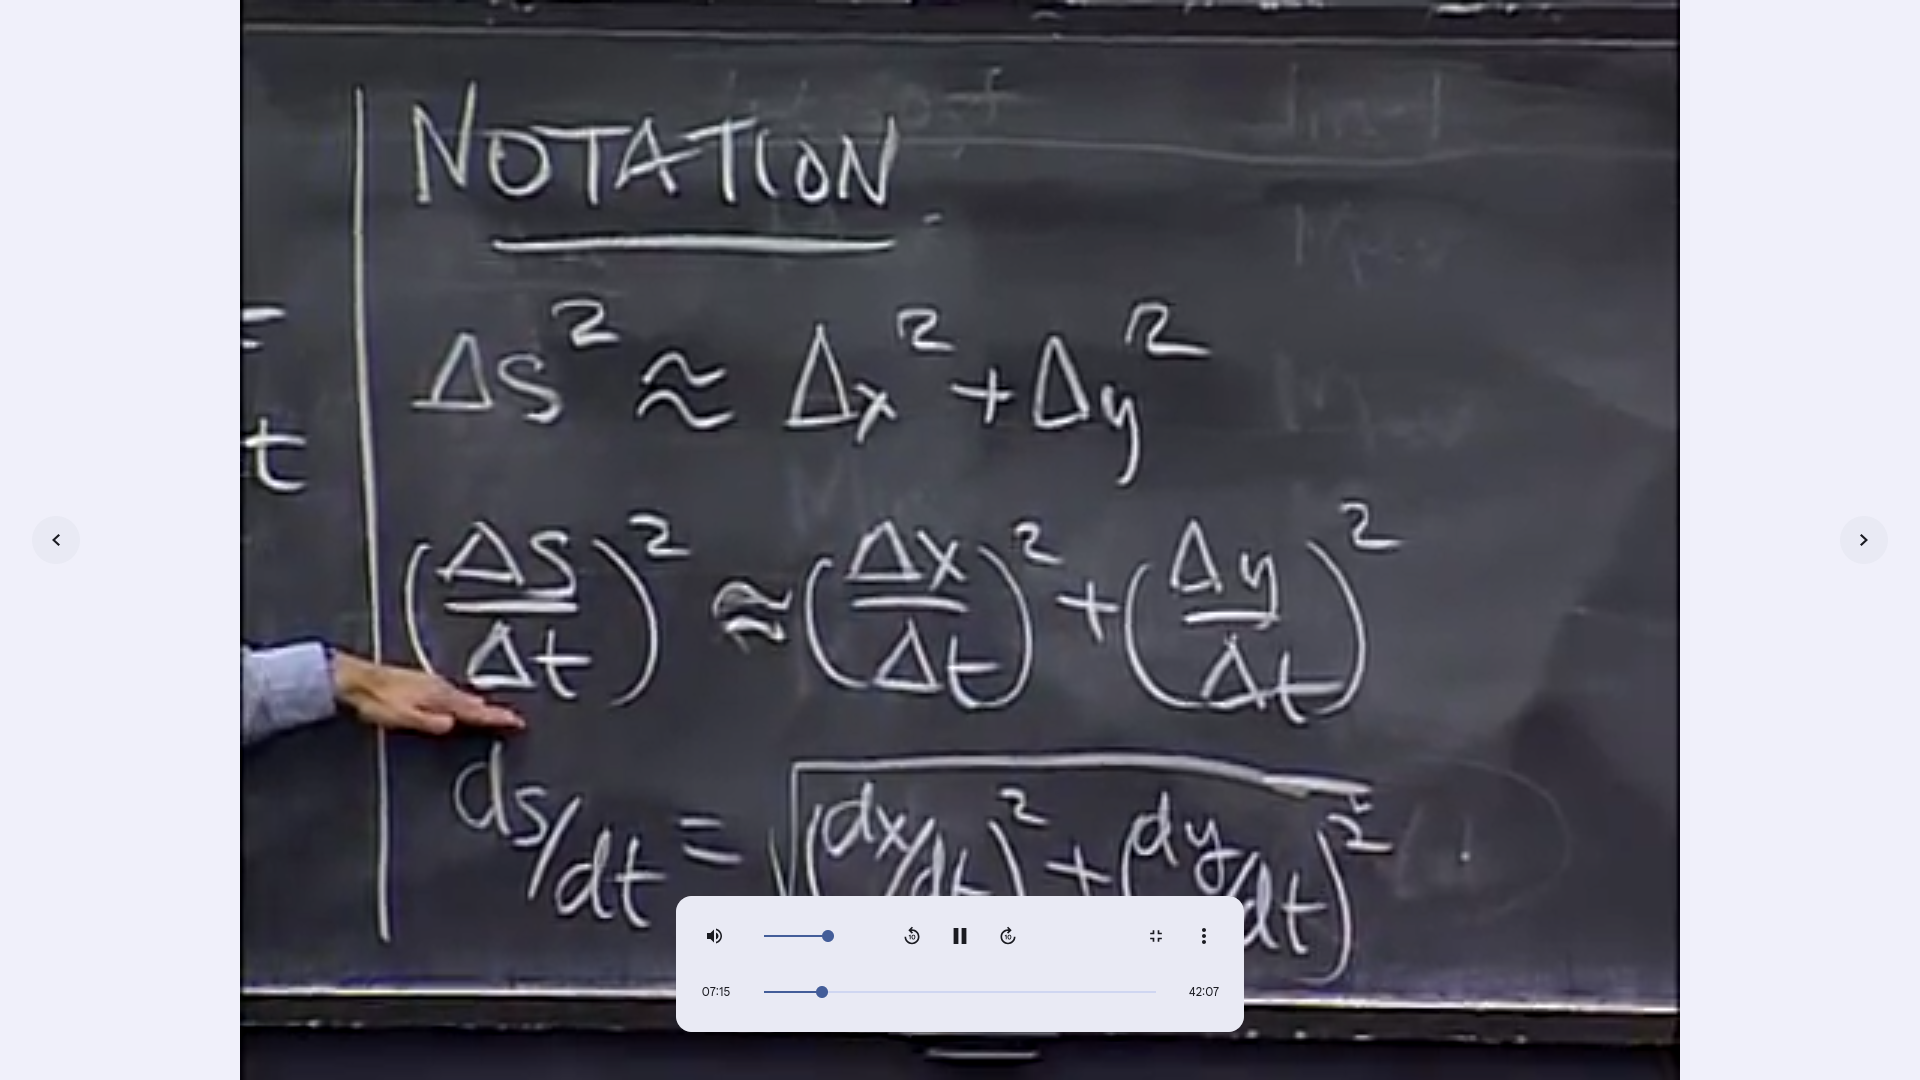 NOTATION
=
ΔS² ≈ Δx² + Δy²
t
(ΔS/Δt)² ≈ (Δx/Δt)² + (Δy/Δt)²
ds/dt = √((dx/dt)² + (dy/dt)²)
10 10
07:15 42:07